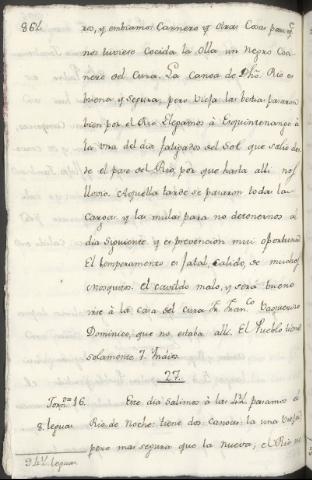 86½
reo, y embiamos Carnero y otras Cosas para q.e
nos tuviese Cocida la Olla un Negro Coci
nero del Cura. La Canoa de dho. Rio es
buena, y segura, pero vieja las bestias pasaron
bien por el Rio. Llegamos à Esquintenango à
la una del dia fatigados del Sol que salio des
de el paso del Rio, por que hasta alli nos
llovio. Aquella tarde se pasaron todas las
Cargas, y las mulas para no detenernos al
dia siguiente y es prevencion mui oportuna.
El temperamento es fatal, calido, de muchos
mosquitos. El cavildo malo, y será bueno
irse à la casa del cura Fr. Fran.co Baquerizo
Dominico, que no estaba alli. El Pueblo tiene
solamente 7 Indios.
27.
8. leguas
Este dia salimos à las 4½ pasamos el
Rio de Noche: tiene dos Canoas: la una vieja
pero mas segura que la nueva; el Rio
94½ leguas